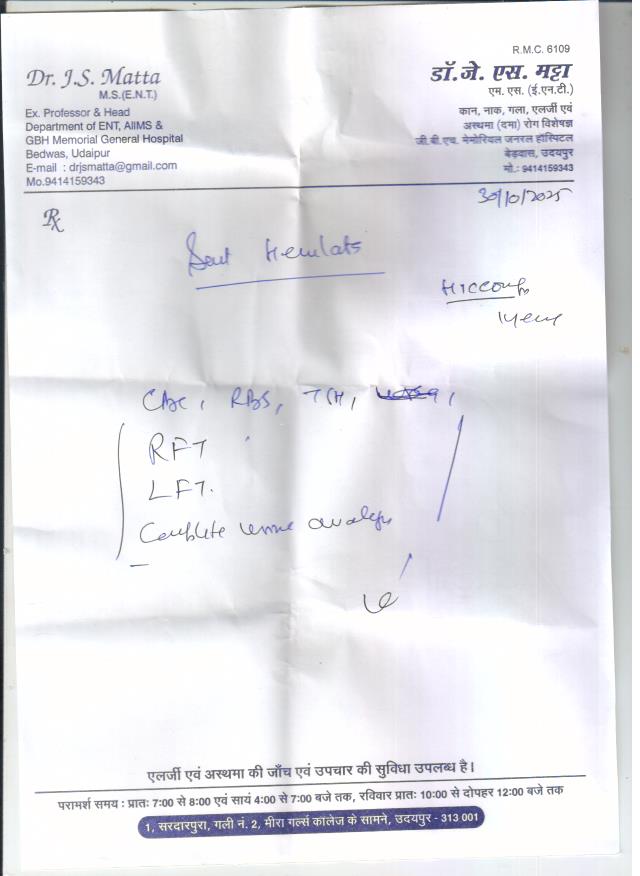 R.M.C. 6109
Dr. J.S. Matta
M.S.(E.N.T.)
Ex. Professor & Head
Department of ENT, AIIMS &
GBH Memorial General Hospital
Bedwas, Udaipur
E-mail : drjsmatta@gmail.com
Mo.9414159343
डॉ. जे. एस. मट्टा
एम. एस. (ई.एन.टी.)
कान, नाक, गला, एलर्जी एवं
अस्थमा (दमा) रोग विशेषज्ञ
जी.बी.एच. मेमोरियल जनरल हॉस्पिटल
बेड़वास, उदयपुर
मो.: 9414159343
30/10/2025
Rx
Hiccough
CBC, RBS, TSH,
RFT
LFT.
Complete urine analys
एलर्जी एवं अस्थमा की जाँच एवं उपचार की सुविधा उपलब्ध है।
परामर्श समय : प्रातः 7:00 से 8:00 एवं सायं 4:00 से 7:00 बजे तक, रविवार प्रातः 10:00 से दोपहर 12:00 बजे तक
1, सरदारपुरा, गली नं. 2, मीरा गर्ल्स कॉलेज के सामने, उदयपुर - 313 001